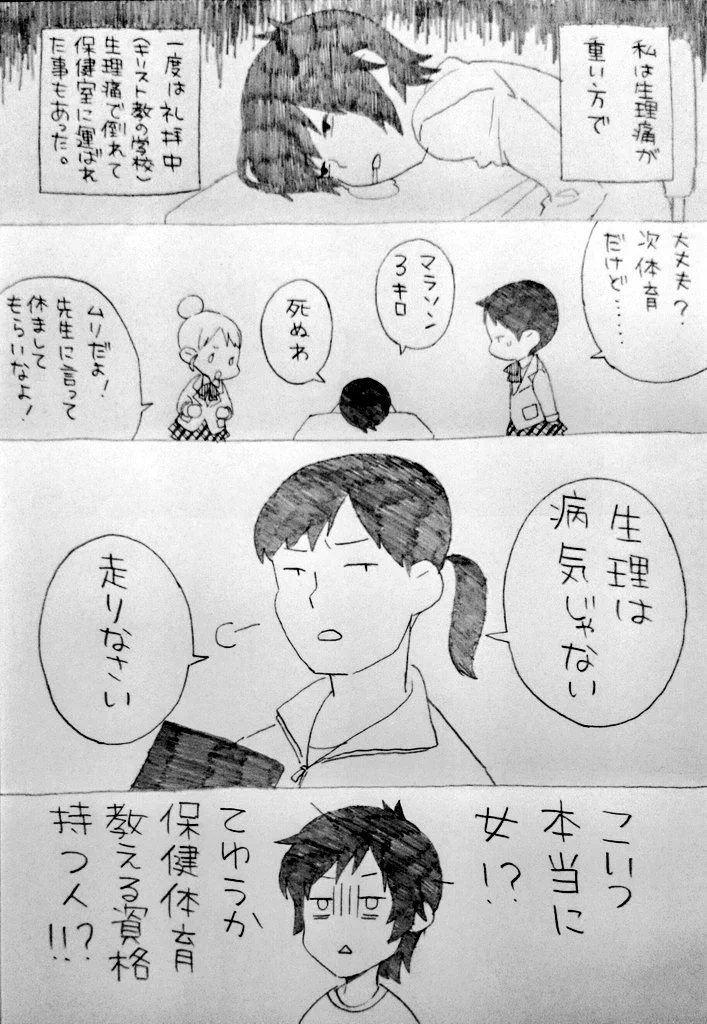 私は生理痛が
重い方で
一度は礼拝中
(キリスト教の学校)
生理痛で倒れて
保健室に運ばれ
た事もあった。
大丈夫?
次体育
だけど……
マラソン
3キロ
死ぬわ
ムリだよ!
先生に言って
休まして
もらいなよ!
生理は
病気じゃない
走りなさい
こいつ
本当に
女!?
てゆうか
保健体育
教える資格
持つ人!!?